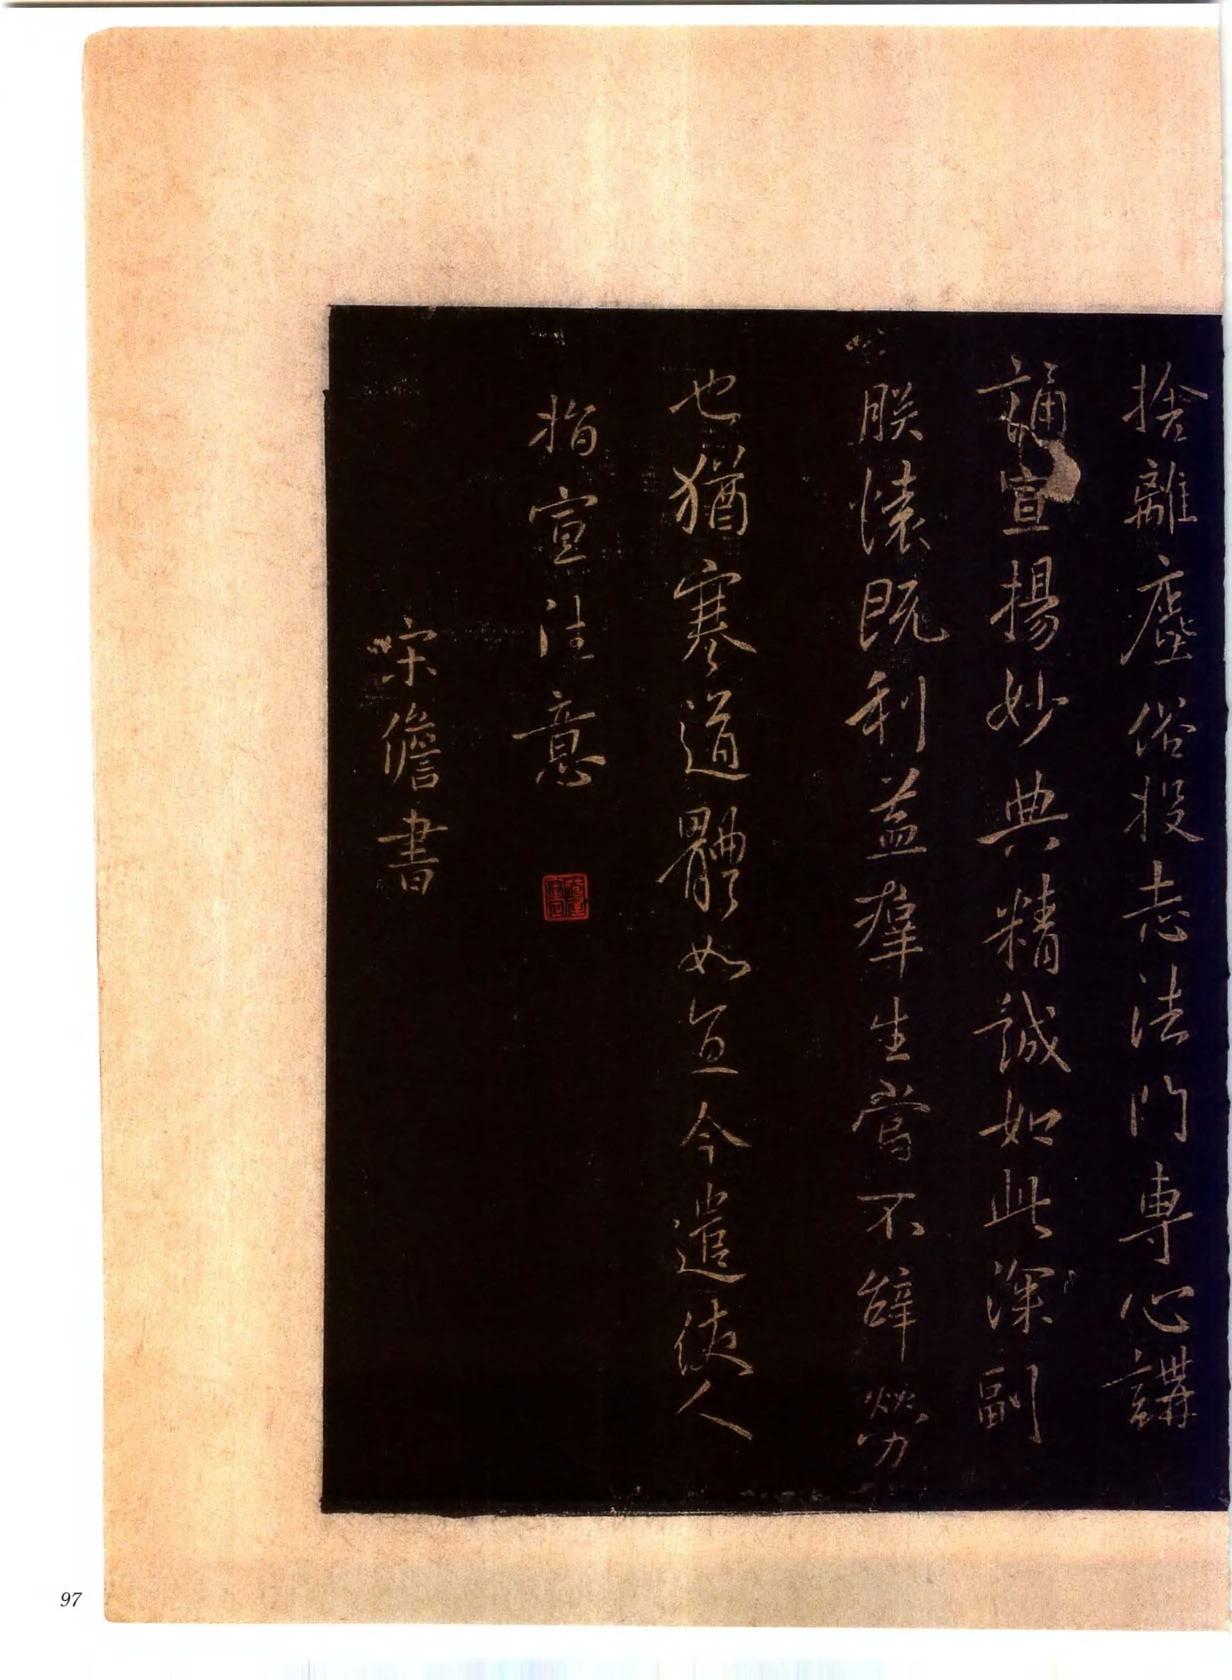 捨離塵俗投志法門專心講
誦宣揚妙典精誠如此深副
朕懷既利益群生當不辭勞
也猶寒道體如宜今遣使人
指宣往意
宋儋書
97